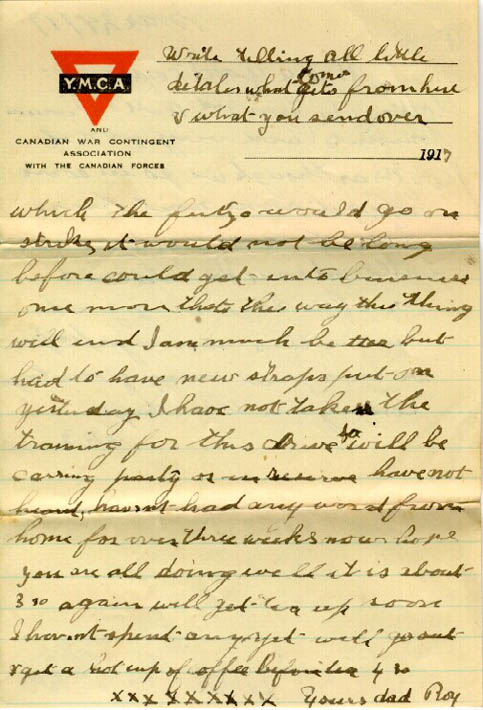 Write telling all little
details what comes gets from here
& what you send over
Y.M.C.A.
AND
CANADIAN WAR CONTINGENT
ASSOCIATION
WITH THE CANADIAN FORCES
1917
which the would go on
strike, it would not be long
before could get into business
once more thats the way this thing
will end I am much better but
had to have new straps put on
yesterday I have not taken the
training for this drive so will be
carring party or in reserve have not
heard, havnt had any word from
home for over three weeks now hope
you are all doing well it is about
3 30 again will get tea up soon
I havnt spent any yet will go out
& get a hot cup of coffee before tea 4 30
xxx xxxxxxx Yours dad Roy